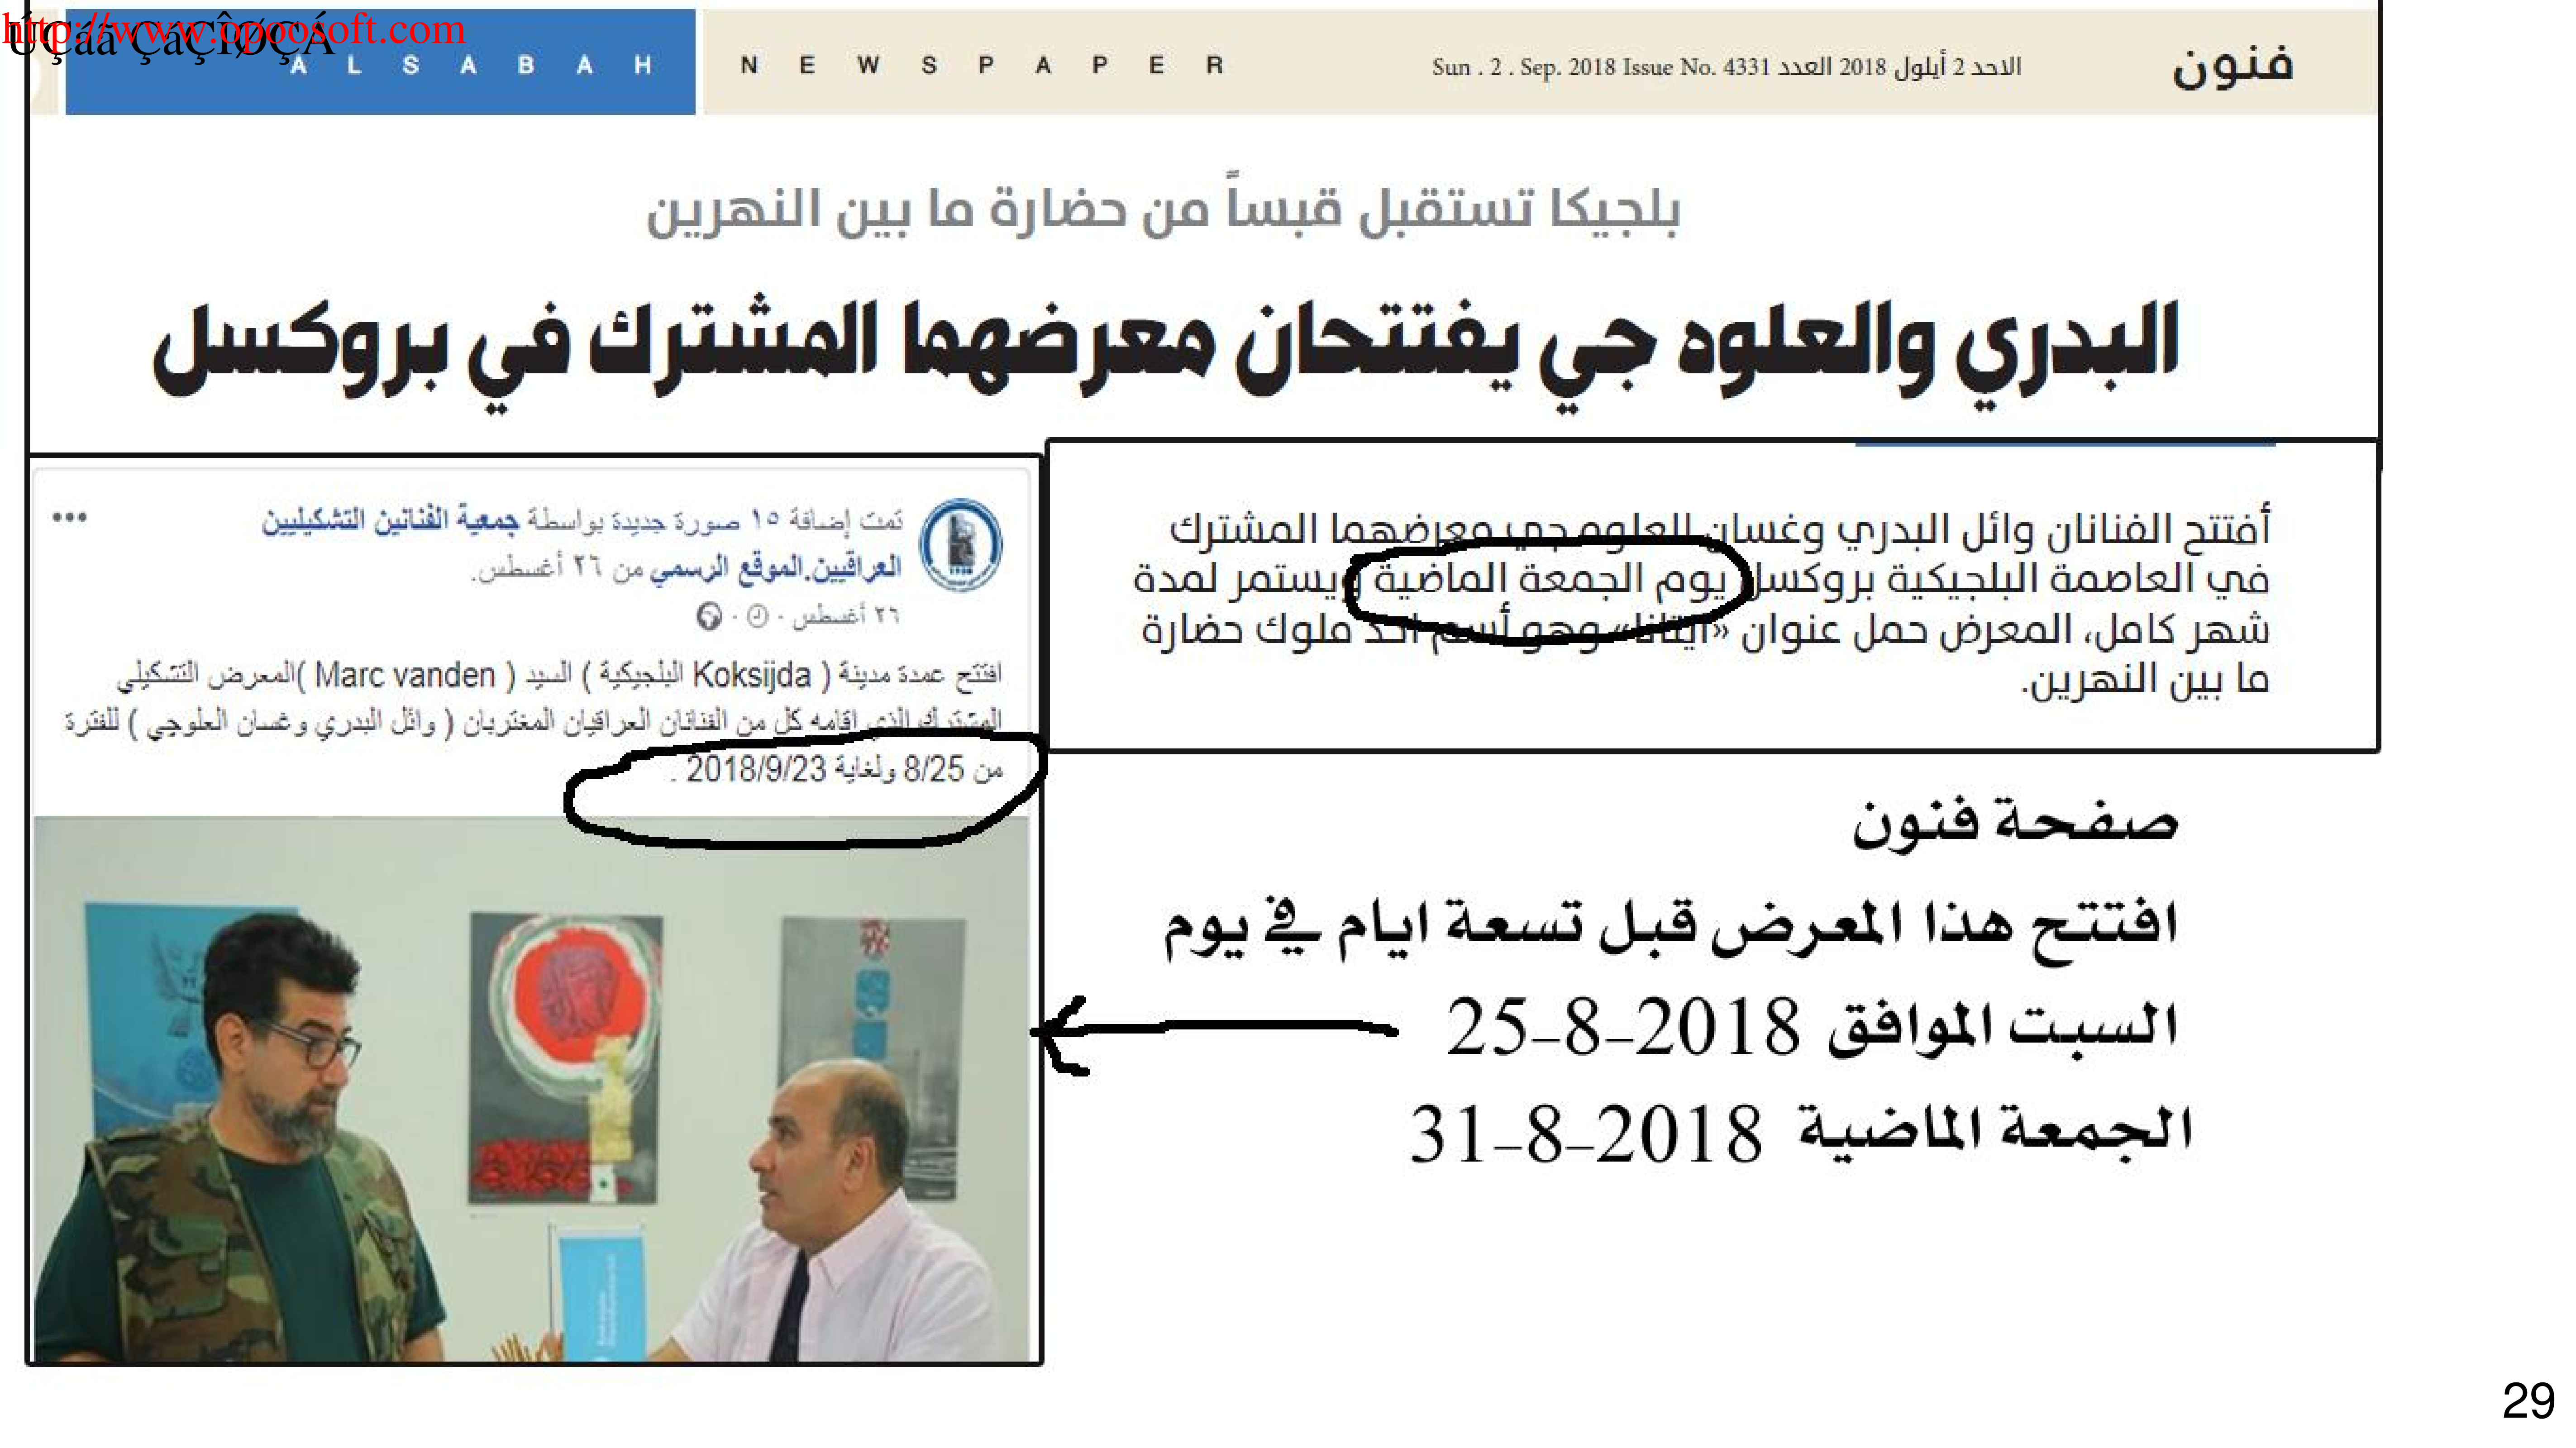 http://www.ôpoosoft.com
ÚÇáã ÇáÇÎØÇÁ
ALSABAH NEWSPAPER
Sun . 2 . Sep. 2018 Issue No. 4331 الاحد 2 أيلول 2018 العدد
فنون
بلجيكا تستقبل قبساً من حضارة ما بين النهرين
البدري والعلوه جي يفتتحان معرضهما المشترك في بروكسل
أفتتح الفنانان وائل البدري وغسان العلوه جي معرضهما المشترك
في العاصمة البلجيكية بروكسل يوم الجمعة الماضية ويستمر لمدة
شهر كامل، المعرض حمل عنوان «ايتانا» وهو أسم احد ملوك حضارة
ما بين النهرين.
تمت إضافة ١٥ صورة جديدة بواسطة جمعية الفنانين التشكيليين
العراقيين.الموقع الرسمي من ٢٦ أغسطس.
٢٦ أغسطس
افتتح عمدة مدينة ( Koksijda البلجيكية ) السيد ( Marc vanden )المعرض التشكيلي
المشترك الذي اقامه كل من الفنانان العراقيان المغتربان ( وائل البدري وغسان العلوجي ) للفترة
من 8/25 ولغاية 2018/9/23 .
صفحة فنون
افتتح هذا المعرض قبل تسعة ايام في يوم
السبت الموافق 2018-8-25
الجمعة الماضية 2018-8-31
29